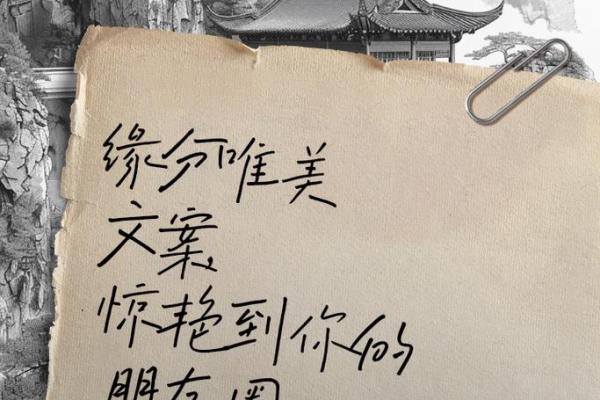 缘分唯美
文案
惊艳到你的
朋友圈